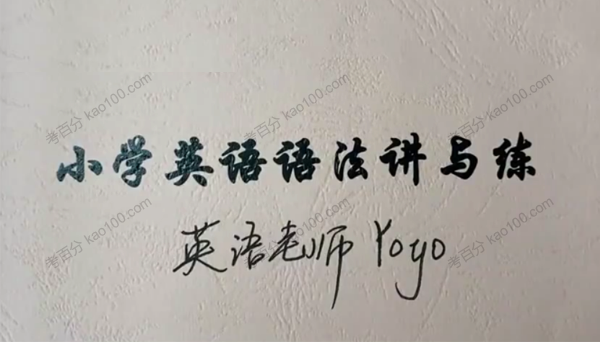 小学英语语法讲与练
英语老师 Yoyo
考百分 kao100.com
考百分 kao100.com
考百分 kao100.com
考百分 kao100.com
考百分 kao100.com
考百分 kao100.com
考百分 kao100.com
考百分 kao100.com